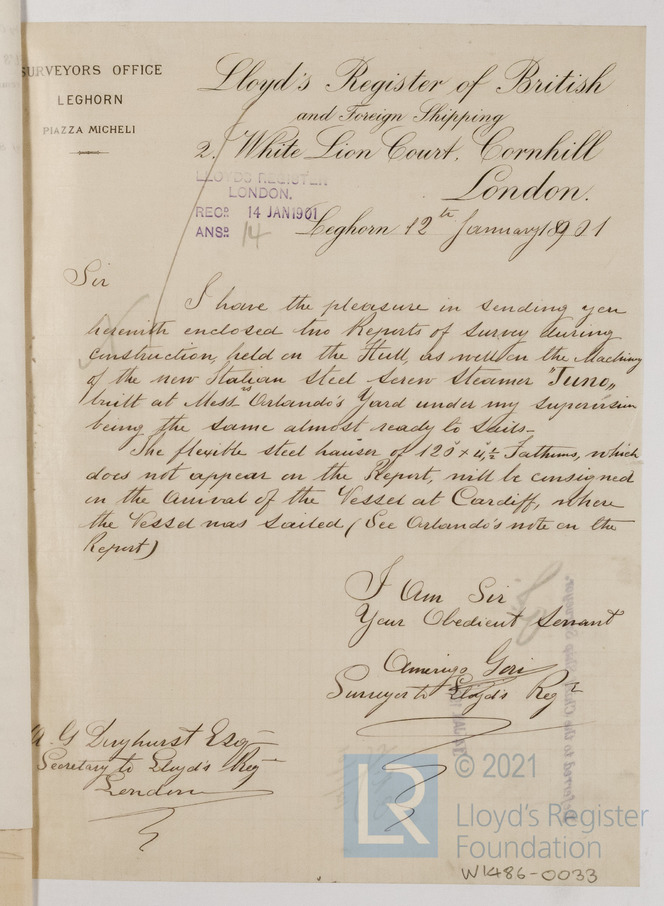 SURVEYORS OFFICE
LEGHORN
PIAZZA MICHELI
Lloyd's Register of British
and Foreign Shipping
2. White Lion Court. Cornhill
London.
LLOYDS REGISTER
LONDON.
RECD. 14 JAN 1901
ANSD. 14
Leghorn 12th January 1901
Sir
I have the pleasure in sending you
herewith enclosed two Reports of Survey during
construction, held on the Hull, as well on the Machiny
of the new Italian Steel Screw Steamer "Juno„
built at Messrs Orlando's Yard under my supervision
being the same almost ready to sails-
The flexible steel hauser of 120 x 4½ Fathoms, which
does not appear on the Report, will be consigned
on the Arrival of the Vessel at Cardiff, where
the Vessel was Sailed (See Orlando's note on the
Report)
I Am Sir
Your Obedient Servant
Amerigo Gori
Surveyor to Lloyd's Regr
A. G Dryhurst Esq
Secretary to Lloyd's Reg
London
Referred to the Chief Ship Surveyor.
LR
© 2021
Lloyd's Register
Foundation
W1486-0033